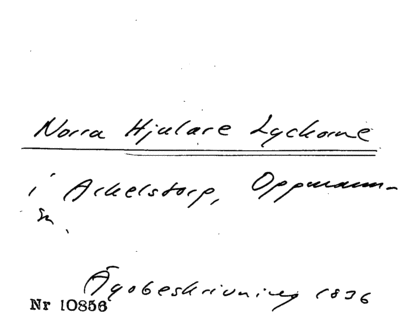 Norra Hjulare Lyckorne
i Arkelstorp, Oppmann-
sn.
Ägobeskrivning 1836
Nr 10856